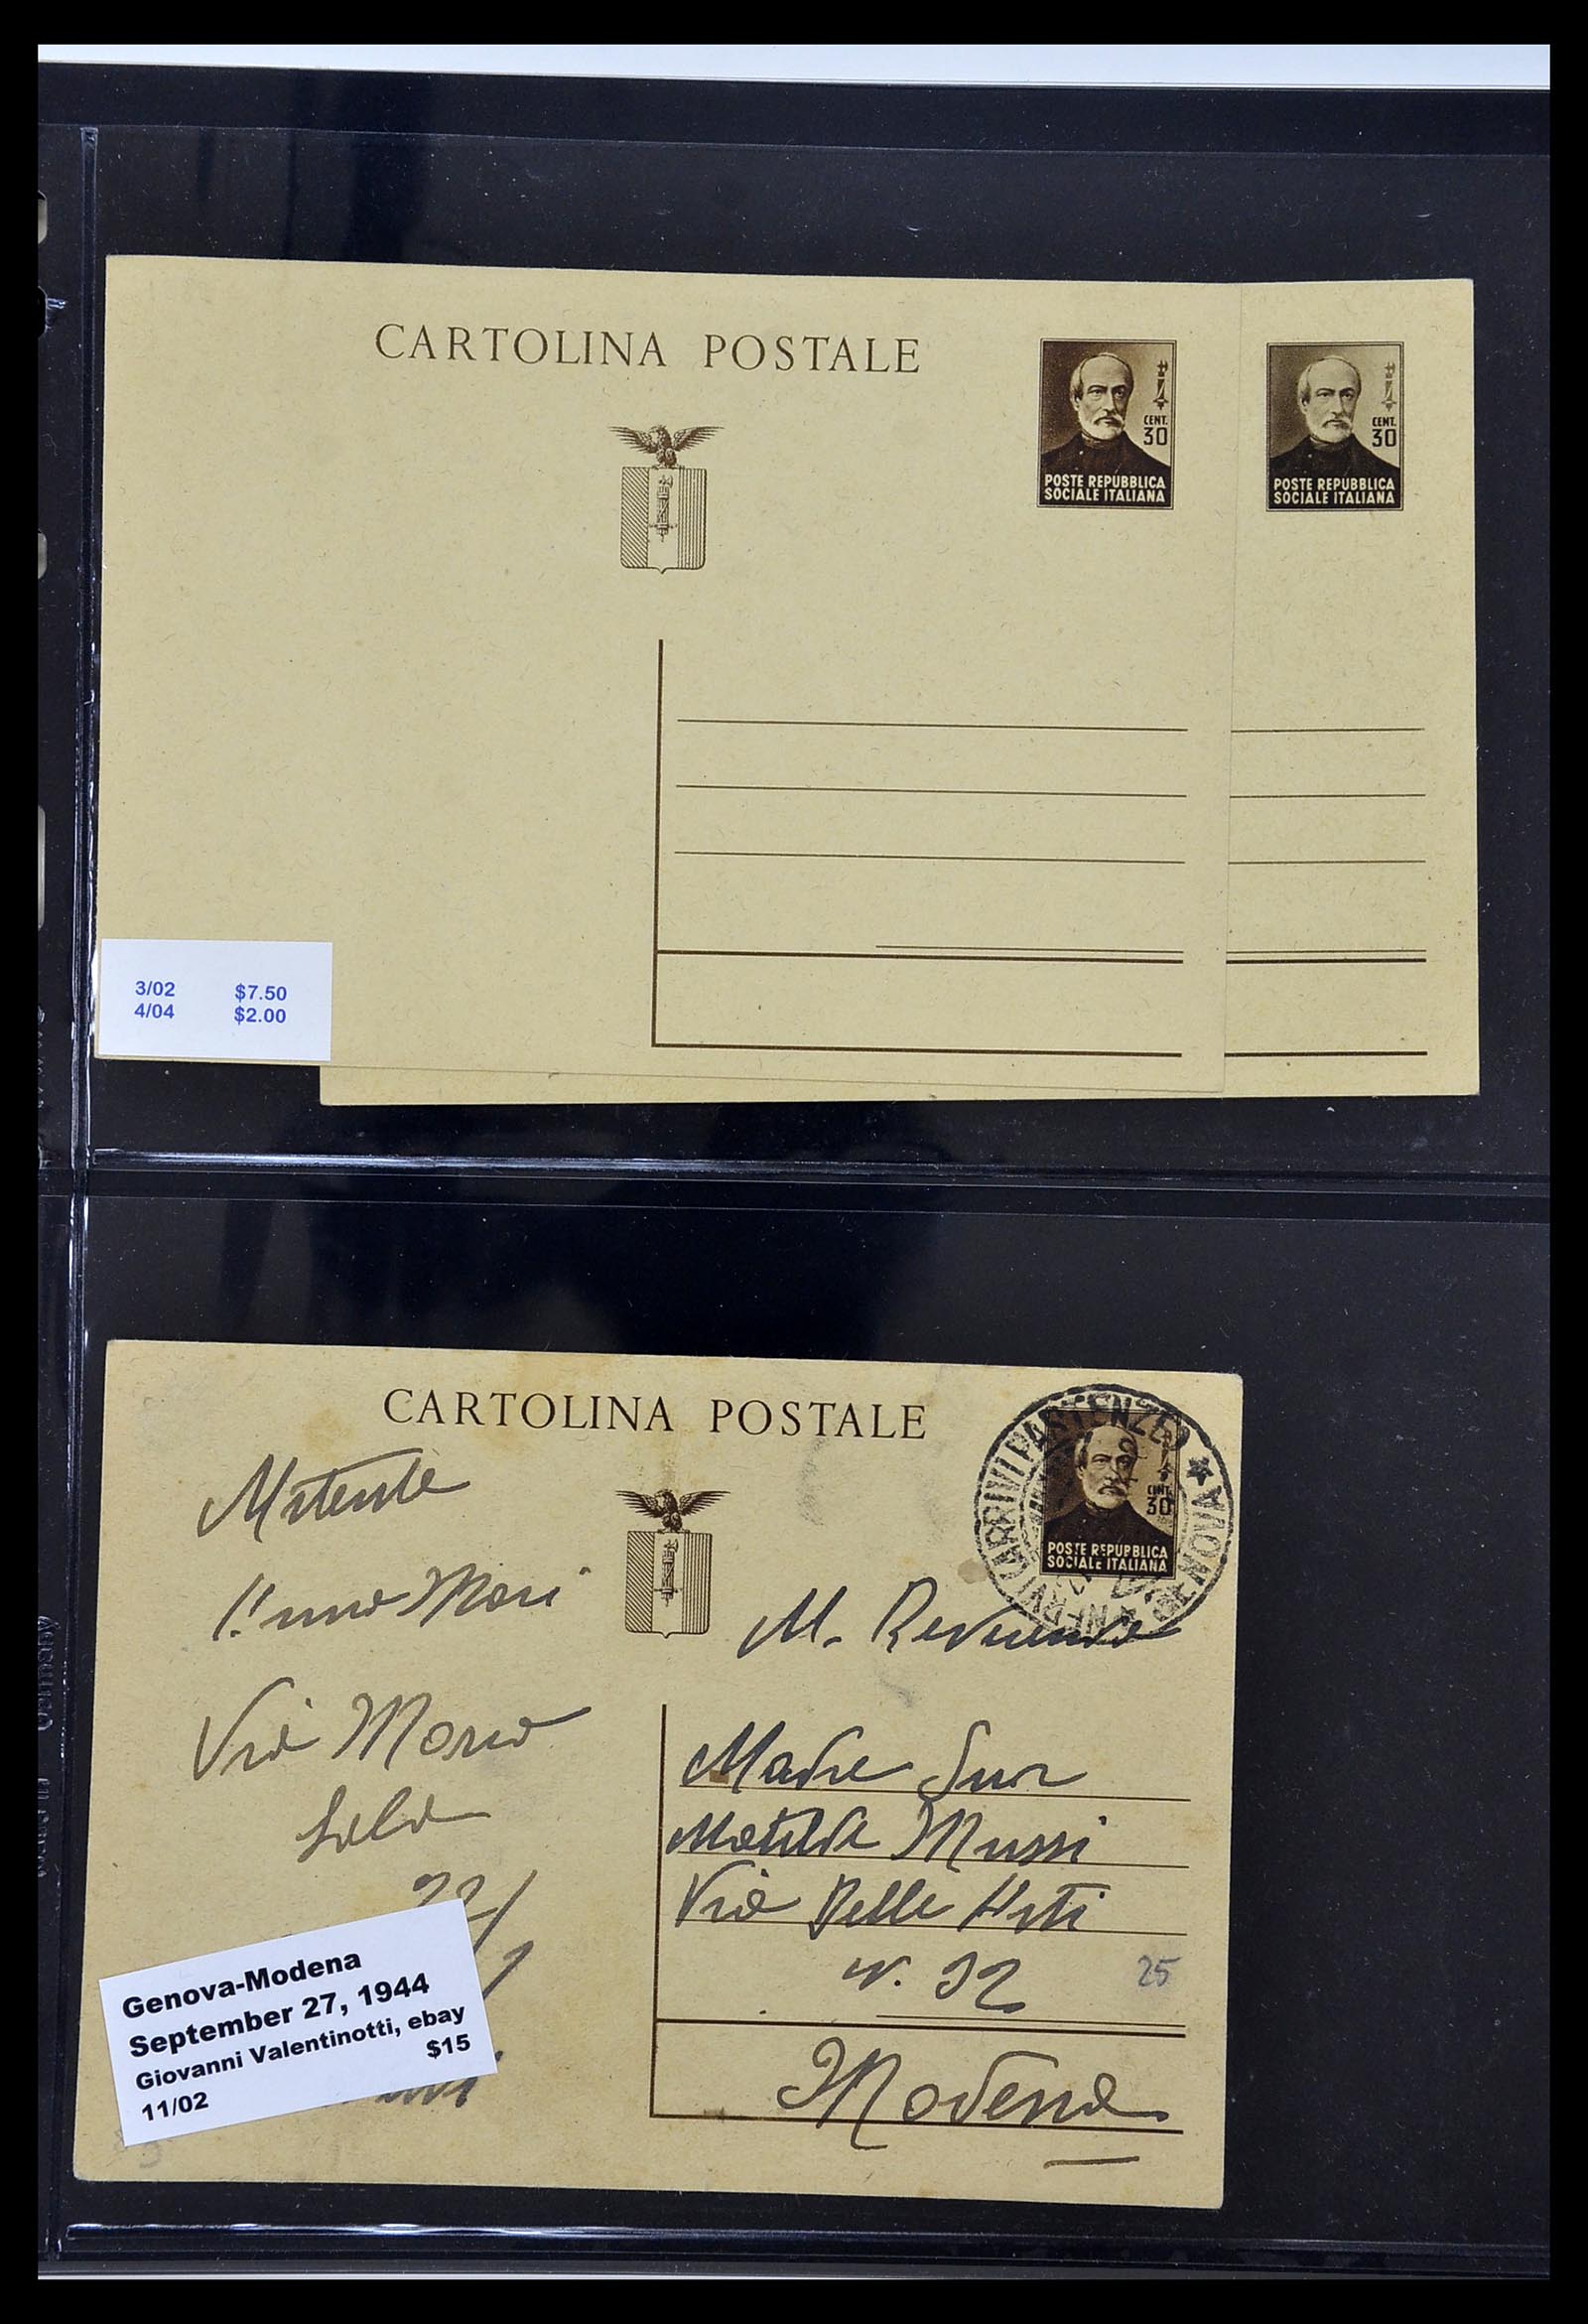 CARTOLINA POSTALE
CENT.
30
POSTE REPUBBLICA
SOCIALE ITALIANA
CENT.
30
POSTE REPUBBLICA
SOCIALE ITALIANA
3/02 $7.50
4/04 $2.00
CARTOLINA POSTALE
CENT.
30
POSTE REPUBBLICA
SOCIALE ITALIANA
ARRIVI PARTENZE
NERVI
Mittente
Mori
Via
22/
Genova-Modena
September 27, 1944
Giovanni Valentinotti, ebay
$15
11/02
M. Reverenda
Madre Suor
Matilde Mussi
Via Belle Arti
n. 32
25
Modena